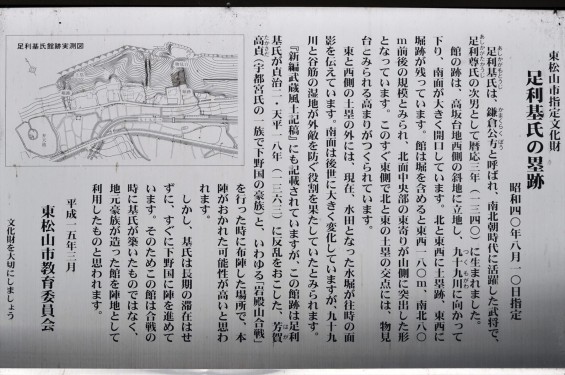 東松山市指定文化財
足利基氏の塁跡
昭和四〇年八月一〇日指定
足利基氏は、鎌倉公方と呼ばれ、南北朝時代に活躍した武将で、
足利尊氏の次男として暦応三年(一三四〇)に生まれました。
館の跡は、高坂台地西側の斜地に立地し、九十九川に向かって
下り、南面が大きく開口しています。北と東西に土塁跡、東西に
堀跡が残っています。館は堀を含めると東西一八〇m、南北八〇
m前後の規模とみられ、北面中央部の東寄りが山側に突出した形
となっています。このすぐ東側で北と東の土塁の交点には、物見
台とみられる高まりがつくられています。
東と西側の土塁の外には、現在、水田となった水堀が往時の面
影を伝えています。南面は後世に大きく変化していますが、九十九
川と谷筋の湿地が外敵を防ぐ役割を果たしていたとみられます。
『新編武蔵風土記稿』にも記載されていますが、この館跡は足利
基氏が貞治二・天平一八年(一三六三)に反乱をおこした、芳賀
高貞(宇都宮氏の一族で下野国の豪族)と、いわゆる「岩殿山合戦」
を行った時に布陣した場所で、本
陣がおかれた可能性が高いと思わ
れます。
しかし、基氏は長期の滞在はせ
ずに、すぐに下野国に陣を進めて
います。そのためこの館は合戦の
時に基氏が築いたものではなく、
地元豪族が造った館を陣地として
利用したものと思われます。
平成一五年三月
東松山市教育委員会
文化財を大切にしましょう
足利基氏館跡実測図